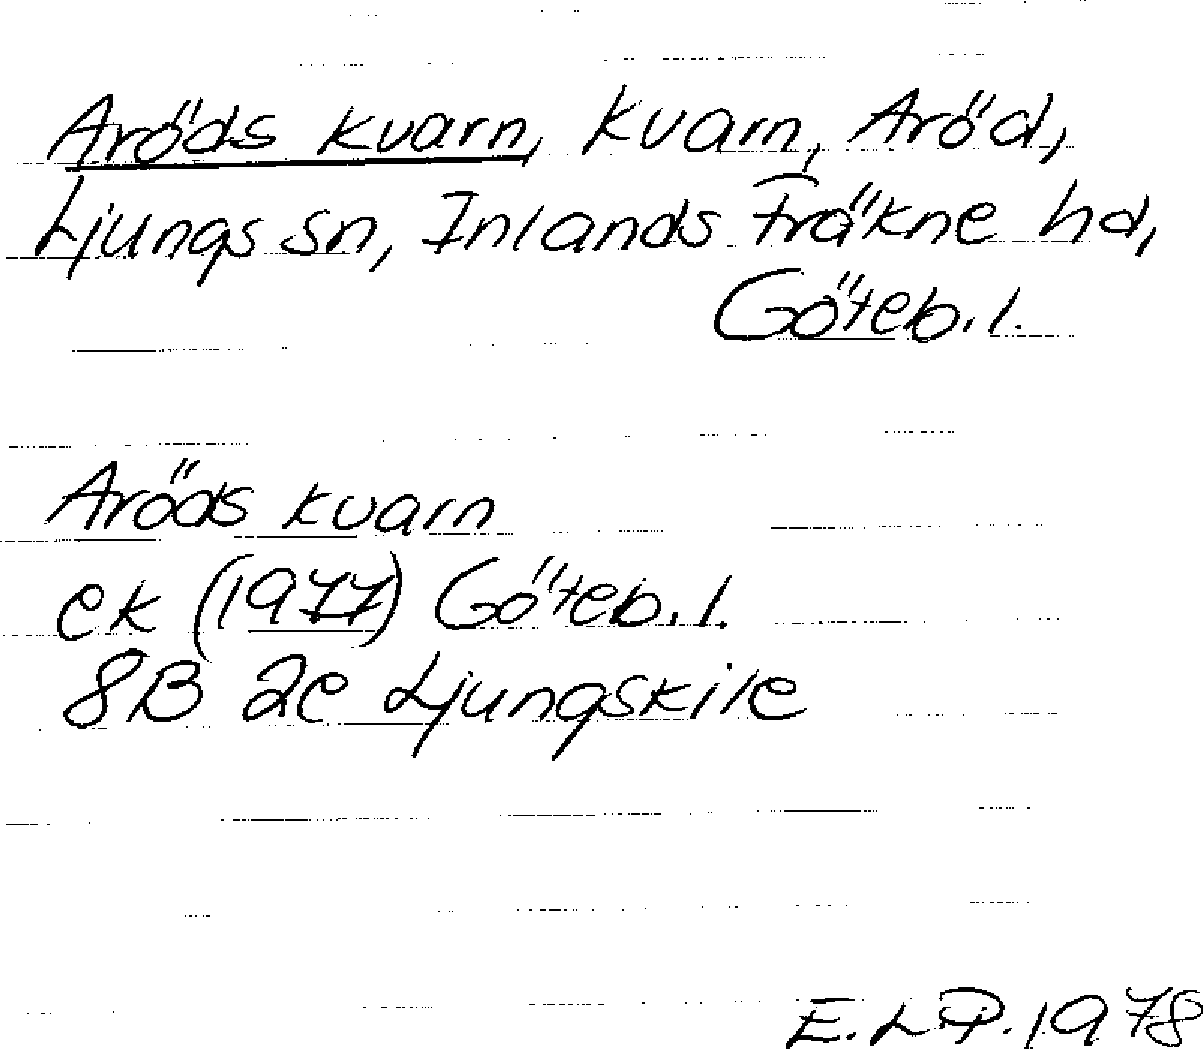 Aröds kvarn, kvarn, Aröd,
Ljungs sn, Inlands Fräkne hd,
Göteb. l.
Aröds kvarn
ek (1977) Göteb. l.
8B 2e Ljungskile
E.L.P. 1978